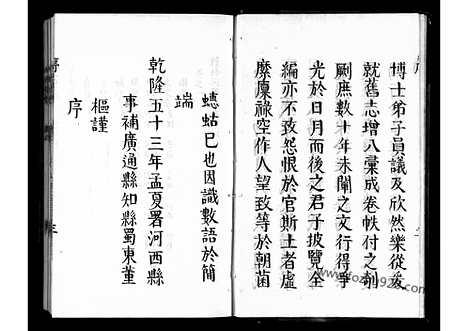 博士弟子員議及欣然樂從爰
就舊志增入彙成卷帙付之剞
劂庶數十年未闡之文行得爭
光於日月而後之君子披覽全
編亦不致怨恨於官斯土者虛
縻廩祿空作人望致等於朝菌
蟪蛄已也因識數語於簡
端
乾隆五十三年孟夏署河西縣
事補廣通縣知縣蜀東董
樞謹
序
www.yidulib.com